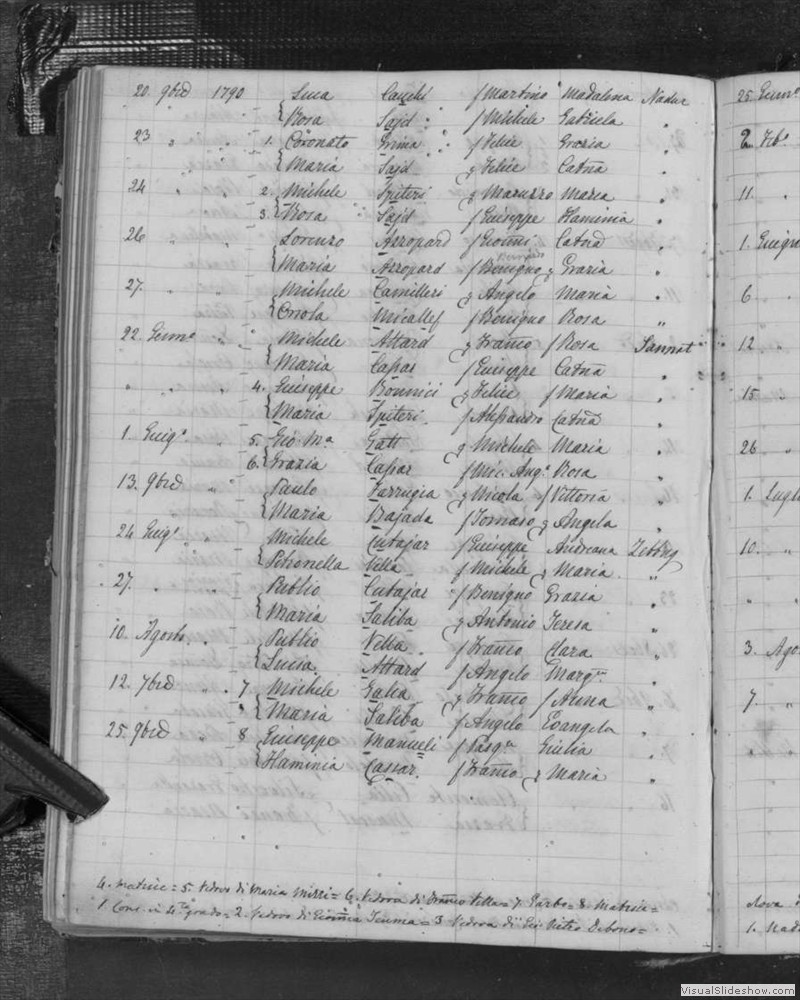 20. 9bre 1790 Luca Cauchi f Martino Madalena Nadur
Rosa Sajd f Michele Gabriela "
23 " " 1. Coronato Grima f Felice Grazia "
Maria Sajd q Felice Catna "
24 " " 2. Michele Spiteri q Maruzzo Maria "
3. Rosa Sajd f Giuseppe Flaminia "
26 " " Lorenzo Azzopard f Gionni Catna "
Maria Azzopard f Benigno q Grazia "
27. " " Michele Camilleri q Angelo Maria "
Micallef f Benigno Rosa "
22. Genno " " Michele Attard q Franco f Rosa Sannat
Maria Capar f Giuseppe Catna "
" " " 4. Giuseppe Bonnici q Felice f Maria "
Maria Spiteri. f Alessandro Catna "
1. Giugo " 5. Gio Ma Gatt q Michele Maria "
6. Grazia Capar f Mic. Ango Rosa "
13. 9bre " " Paulo Farrugia q Nicola f Vittoria "
Maria Bajada f Tomaso q Angela "
24 Giugo " Michele Cutajar f Giuseppe Andreana Zebbug
Petronella Vella f Michele q Maria "
27. " " Publio Cutajar f Benigno Grazia "
Maria Saliba q Antonio Teresa "
10. Agosto " Publio Vella f Franco Clara "
Lucia Attard f Angelo Margta "
12. 7bre " 7 Michele Galia q Franco f Anna "
Maria Saliba f Angelo Evangela "
25. 9bre 8 Giuseppe Manueli f Pasqle Giulia "
Flaminia Cassar. f Franco q Maria "
4. Matrice = 5. Vedovo di Maria Mizzi = 6. Vedova di Franco Vella = 7. Garbo = 8. Matrice =
1 Cons. in 4to grado = 2. Vedovo di Giovna = 3 Vedova di Gio Pietro Debono =
25 Genno
2. Febo
11.
1. Giugno
6
12
15
26
1. Luglio
10.
3. Ago
7.
16
1. Nad
VisualSlideshow.com